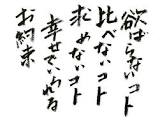 欲ばらないコト
比べないコト
求めないコト
幸せでいられる
お約束